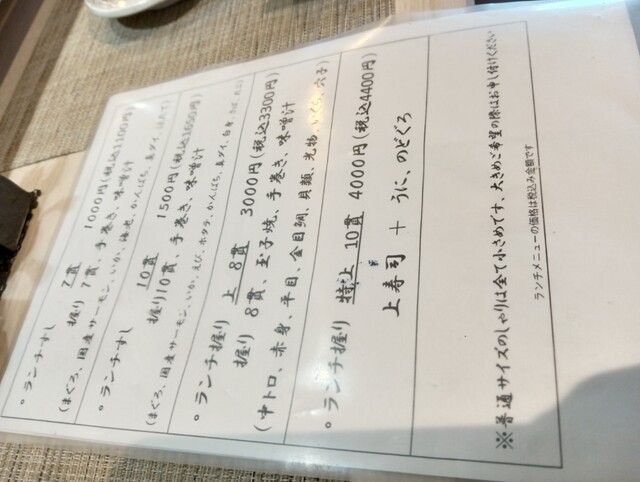 ○ランチすし 7貫 1000円(税込1100円)
握り7貫、手巻き、味噌汁
(まぐろ、国産サーモン、いか、海老、かんぱち、真ダイ、
○ランチすし 10貫 1500円(税込1650円)
握り10貫、手巻き、味噌汁
(まぐろ、国産サーモン、いか、えび、ホタテ、かんぱち、真ダイ、
○ランチ握り 上 8貫 3000円(税込3300円)
握り 8貫、玉子焼、手巻き、味噌汁
(中トロ、赤身、平目、金目鯛、貝類、光物、いくら、穴子)
○ランチ握り 特上 10貫 4000円(税込4400円)
上寿司 + うに、のどぐろ
※普通サイズのしゃりは全て小さめです、大きめご希望の際はお申し付けください
ランチメニューの価格は税込み金額です